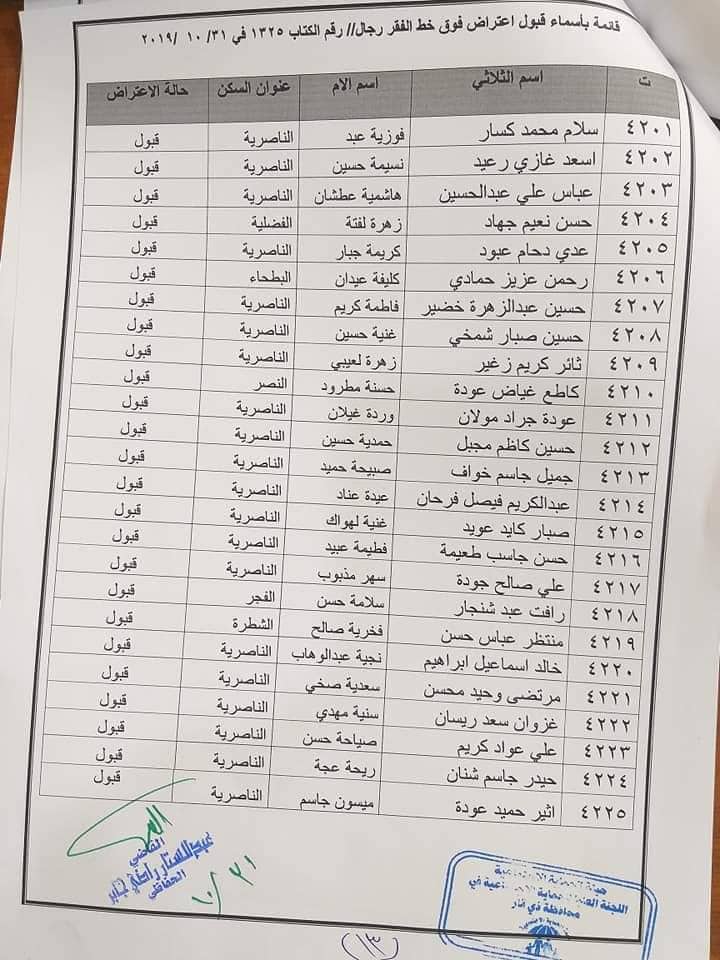 قائمة بأسماء قبول اعتراض فوق خط الفقر رجال// رقم الكتاب ١٣٢٥ في ٣١/ ١٠ /٢٠١٩
ت اسم الثلاثي اسم الام عنوان السكن حالة الاعتراض
٤٢٠١ سلام محمد كسار فوزية عبد الناصرية قبول
٤٢٠٢ اسعد غازي رعيد نسيمة حسين الناصرية قبول
٤٢٠٣ عباس علي عبدالحسين هاشمية عطشان الناصرية قبول
٤٢٠٤ حسن نعيم جهاد زهرة لفتة الفضلية قبول
٤٢٠٥ عدي دحام عبود كريمة جبار الناصرية قبول
٤٢٠٦ رحمن عزيز حمادي كليفة عيدان البطحاء قبول
٤٢٠٧ حسين عبدالزهرة خضير فاطمة كريم الناصرية قبول
٤٢٠٨ حسين صبار شمخي غنية حسين الناصرية قبول
٤٢٠٩ ثائر كريم زغير زهرة لعيبي الناصرية قبول
٤٢١٠ كاطع غياض عودة حسنة مطرود النصر قبول
٤٢١١ عودة جراد مولان وردة غيلان الناصرية قبول
٤٢١٢ حسين كاظم مجبل حمدية حسين الناصرية قبول
٤٢١٣ جميل جاسم خواف صبيحة حميد الناصرية قبول
٤٢١٤ عبدالكريم فيصل فرحان عيدة عناد الناصرية قبول
٤٢١٥ صبار كايد عويد غنية لهواك الناصرية قبول
٤٢١٦ حسن جاسب طعيمة فطيمة عبيد الناصرية قبول
٤٢١٧ علي صالح جودة سهر مذبوب الناصرية قبول
٤٢١٨ رافت عبد شنجار سلامة حسن الفجر قبول
٤٢١٩ منتظر عباس حسن فخرية صالح الشطرة قبول
٤٢٢٠ خالد اسماعيل ابراهيم نجية عبدالوهاب الناصرية قبول
٤٢٢١ مرتضى وحيد محسن سعدية صخي الناصرية قبول
٤٢٢٢ غزوان سعد ريسان سنية مهدي الناصرية قبول
٤٢٢٣ علي عواد كريم صياحة حسن الناصرية قبول
٤٢٢٤ حيدر جاسم شنان ريحة عجة الناصرية قبول
٤٢٢٥ اثير حميد عودة ميسون جاسم الناصرية قبول
القاضي
عبدالستار راضي جابر
الخفاجي
١٠/٣١
محافظة ذي قار
(١٣)